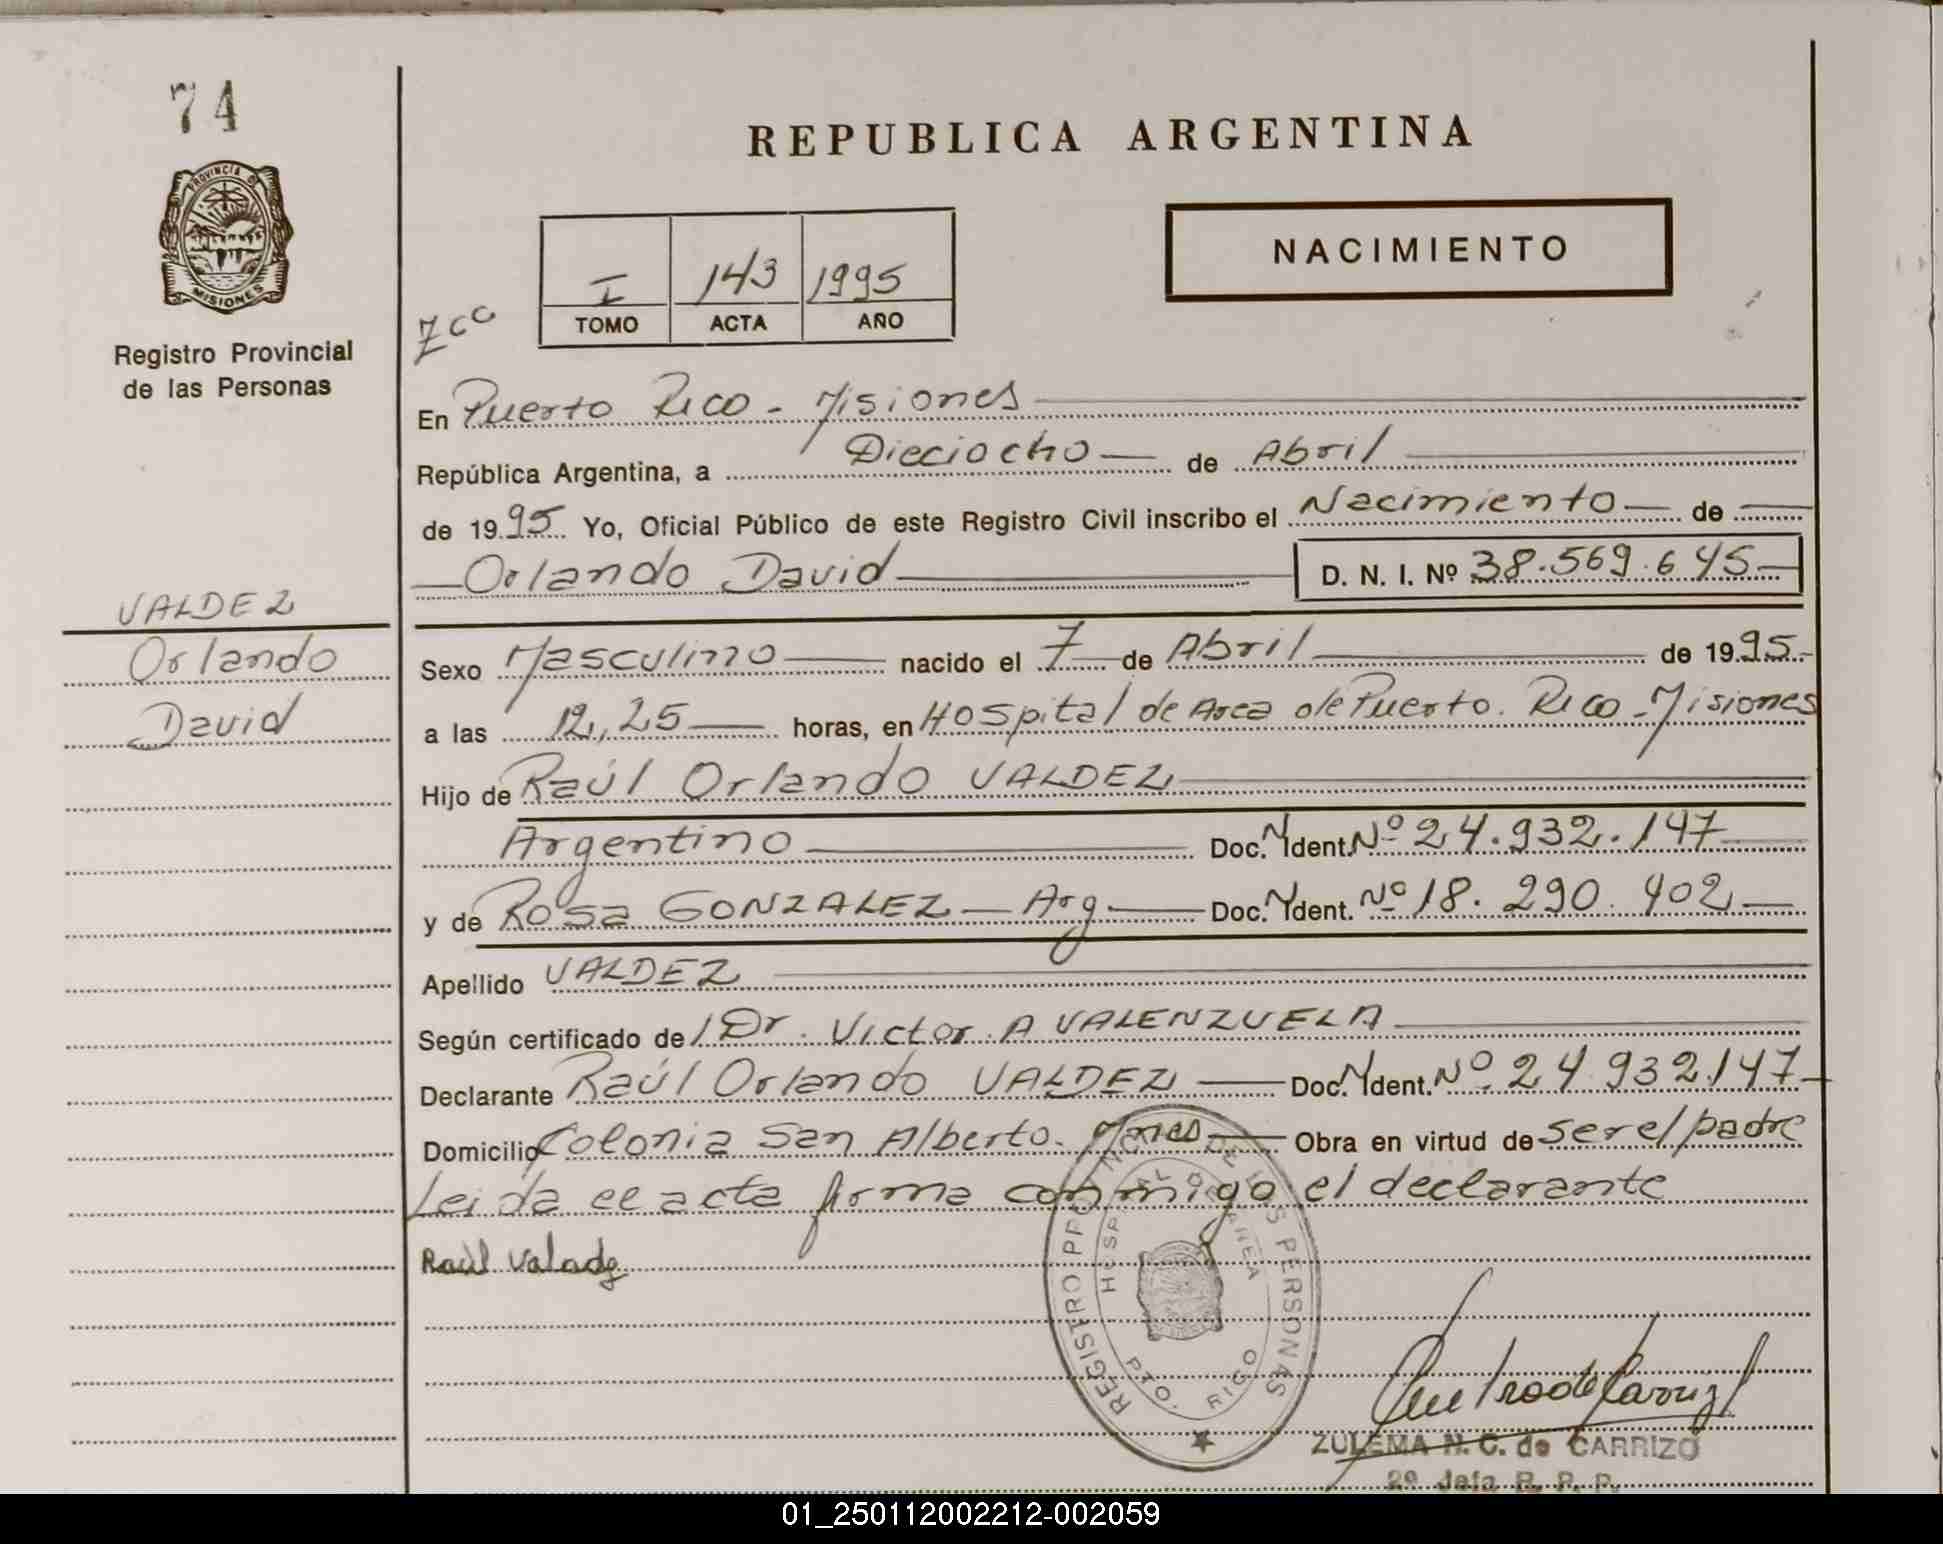 74
PROVINCIA DE
MISIONES
Registro Provincial
de las Personas
VALDEZ
Orlando
David
REPUBLICA ARGENTINA
NACIMIENTO
I 143 1995
TOMO ACTA AÑO
Zcc
En Puerto Rico - Misiones
República Argentina, a Dieciocho de Abril
de 1995 Yo, Oficial Público de este Registro Civil inscribo el Nacimiento de
Orlando David D. N. I. Nº 38.569.645
Sexo Masculino nacido el 7 de Abril de 1995
a las 12,25 horas, en Hospital de Area de Puerto. Rico - Misiones
Hijo de Raúl Orlando VALDEZ
Argentino Doc. N Ident. Nº 24.932.147
y de Rosa GONZALEZ - Arg Doc. N Ident. Nº 18.290.402
Apellido VALDEZ
Según certificado de Dr. Victor. A VALENZUELA
Declarante Raúl Orlando VALDEZ Doc. N Ident. Nº 24 932.147
Domicilio Colonia San Alberto. Mnes Obra en virtud de ser el padre
Leida el acta firma conmigo el declarante
Raúl Valdez
REGISTRO PROVINCIAL DE LAS PERSONAS
HOSPITAL DE AREA
PTO. RICO
ZULEMA N. C. de CARRIZO
2ª Jefa R. P. P.
01_250112002212-002059